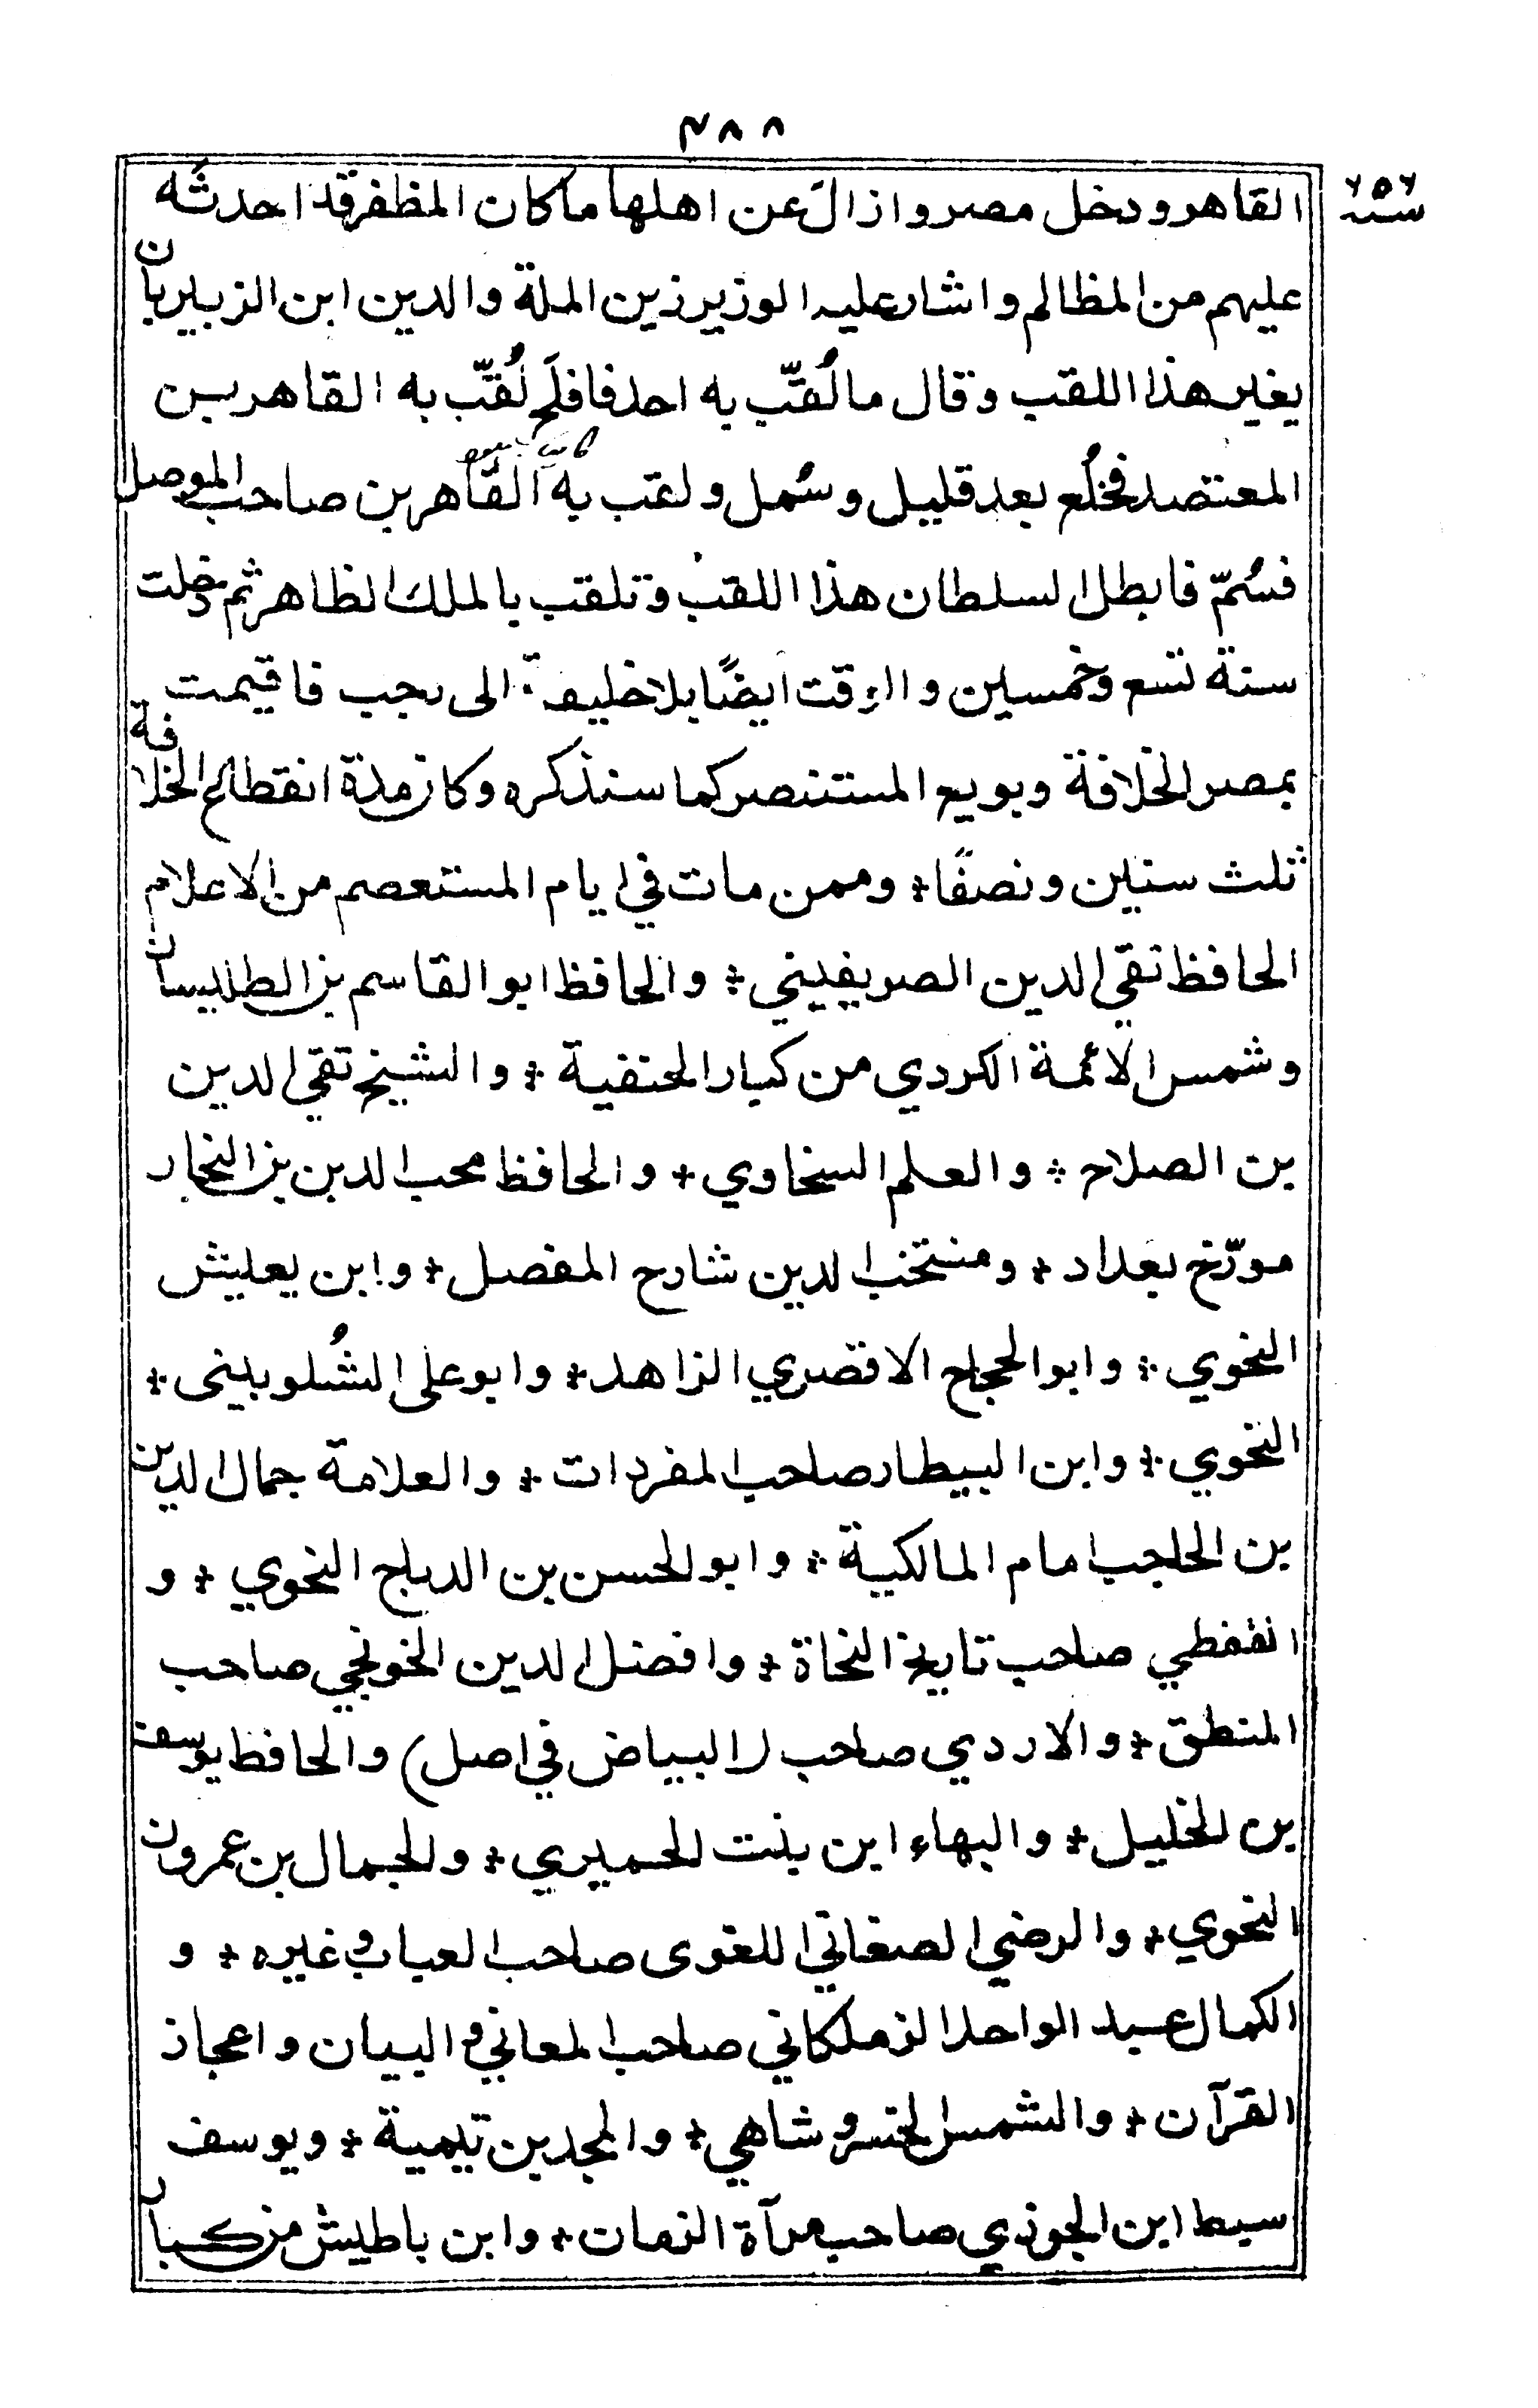 ٤٨٨
سنة ٦٥٦
القاهر ودخل مصر وازالَ عن اهلها ما كان المظفر قد احدثَه
عليهم من المظالم واشار عليه الوزير زين الملة والدين ابن الزبير بان
يغير هذا اللقب وقال ما لُقّب به احد فافلَح لُقّب به القاهر بن
المعتضد فخُلع بعد قليل وسُمل ولقب به القاهر بن صاحب الموصل
فسُمّ فابطل السلطان هذا اللقب وتلقب بالملك الظاهر ثم دخلت
سنة تسع وخمسين والوقت ايضًا بلا خليفة الى رجب فاقيمت
بمصر الخلافة وبويع المستنصر كما سنذكره وكان مدة انقطاع الخلافة
ثلث سنين ونصفًا * وممن مات في ايام المستعصم من الاعلام
الحافظ تقي الدين الصريفيني * والحافظ ابو القاسم بن الطليسان
وشمس الائمة الكردي من كبار الحنفية * والشيخ تقي الدين
بن الصلاح * والعلم السخاوي * والحافظ محب الدين بن النجار
مورّخ بغداد * ومنتخب الدين شارح المفصل * وابن يعيش
النحوي * وابو الحجاج الاقصري الزاهد * وابو على الشُلوبينى *
النحوي * وابن البيطار صاحب المفردات * والعلامة جمال الدين
بن الحاجب امام المالكية * وابو الحسن بن الدباج النحوي * و
القفطي صاحب تاريخ النحاة * وافضل الدين الخونجي صاحب
المنطق * والاردي صاحب (البياض في اصل) والحافظ يوسف
بن الخليل * والبهاء ابن بنت الحميري * والجمال بن عمرون
النحوي * والرضي الصغاني اللغوى صاحب العباب وغيره * و
الكمال عبد الواحد الزملكاني صاحب المعاني والبيان واعجاز
القرآن * والشمس الخسروشاهي * والمجد بن تيمية * ويوسف
سبط ابن الجوزي صاحب مرآة الزمان * وابن باطيش من كبار